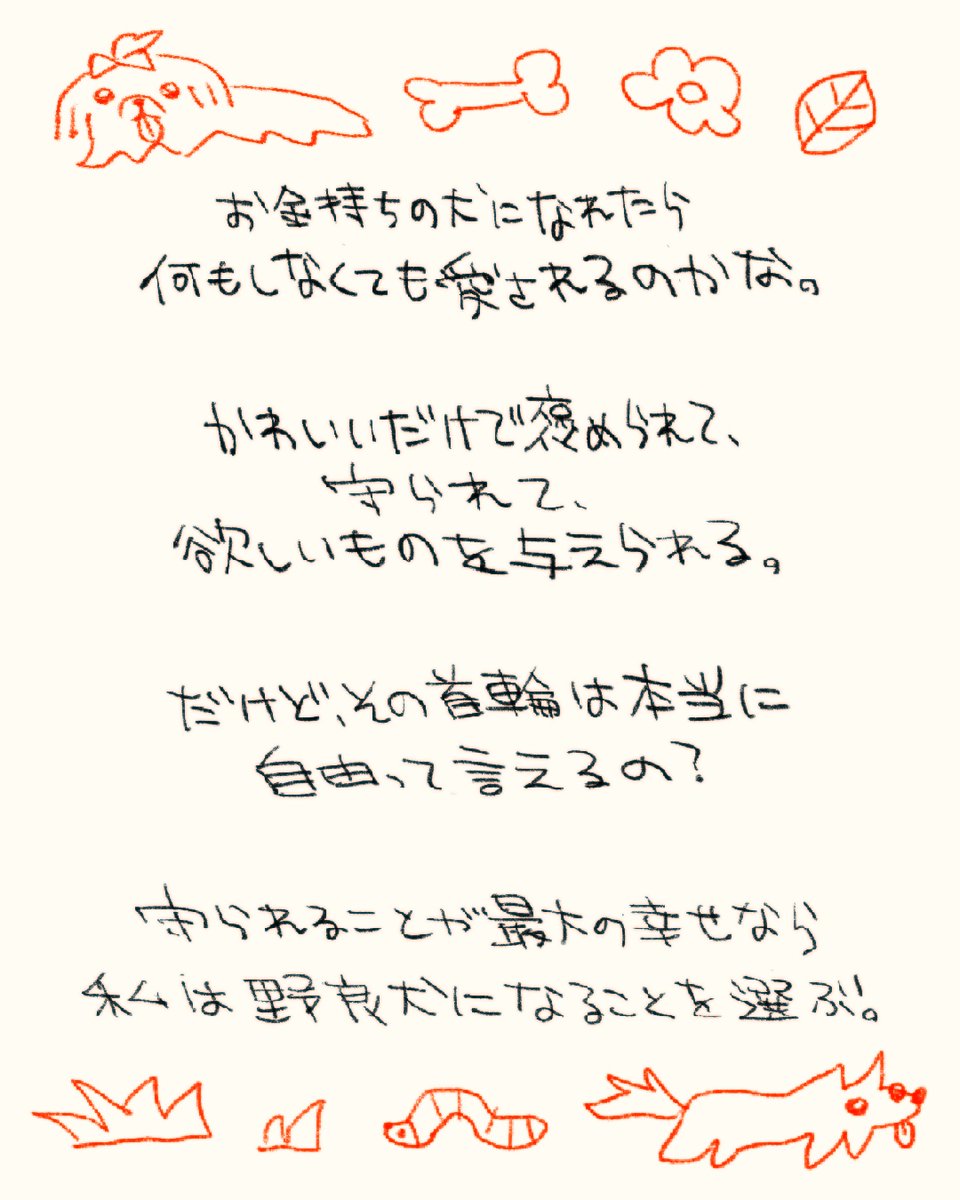 お金持ちの犬になれたら
何もしなくても愛されるのかな。
かわいいだけで褒められて、
守られて、
欲しいものを与えられる。
だけど、その首輪は本当に
自由って言えるの?
守られることが最大の幸せなら
私は野良犬になることを選ぶ。